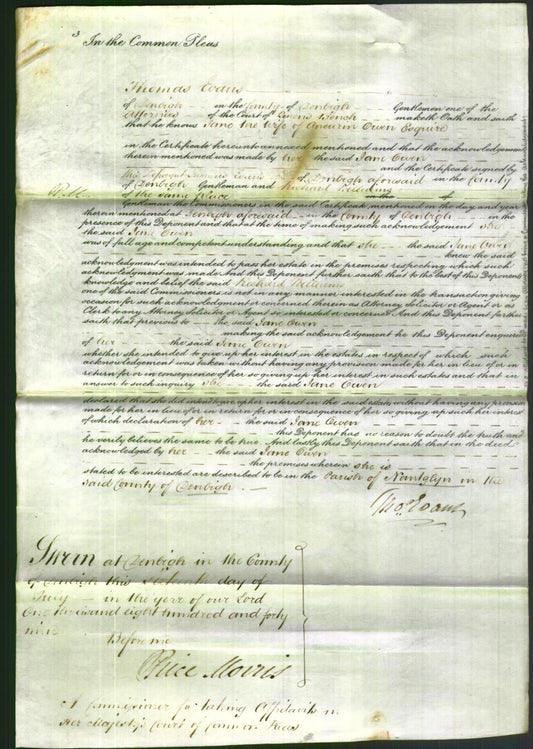 3
In the Common Pleas
Thomas Evans
of Denbigh in the County of Denbigh Gentleman one of the
Attornies of the Court of Queens Bench maketh Oath and saith
that he knows Jane the wife of Aneurin Owen Esquire
in the Certificate hereunto annexed mentioned and that the acknowledgement
therein mentioned was made by her the said Jane Owen
and the Certificate signed by
this Deponent Thomas Evans of Denbigh aforesaid in the County
of Denbigh Gentleman and Richard
of the same place in the of
Gentleman the Commissioners in the said Certificate mentioned on the day and year
therein mentioned at Denbigh aforesaid in the County of Denbigh in the
presence of this Deponent and that at the time of making such acknowledgement she
the said Jane Owen
was of full age and competent understanding and that she the said Jane Owen
knew the said
acknowledgment was intended to pass her estate in the premises respecting which such
acknowledgment was made And this Deponent further saith that to the best of this Deponents
knowledge and belief the said Richard Williams
one of the said Commissioners is not in any manner interested in the transaction giving
occasion for such acknowledgment or concerned therein as Attorney Solicitor or Agent or as
Clerk to any Attorney Solicitor or Agent so interested or concerned And this Deponent further
saith that previous to the said Jane Owen
making the said acknowledgment he this Deponent enquired
of her the said Jane Owen
whether she intended to give up her interest in the estates in respect of which such
acknowledgment was taken without having any provision made for her in lieu of or in
return for or in consequence of her so giving up her interest in such estates and that in
answer to such inquiry she the said Jane Owen
declared that she did intend to give up her interest in the said estate without having any provision
made for her in lieu of or in return for or in consequence of her so giving up such her interest
of which declaration of her the said Jane Owen
this Deponent has no reason to doubt the truth and
he verily believes the same to be true And lastly this Deponent saith that in the deed
acknowledged by her the said Jane Owen
the premises wherein she is
stated to be interested are described to be in the Parish of Nantglyn in the
said County of Denbigh.
Thos. Evans
Sworn at Denbigh in the County
of Denbigh this day of
July in the year of our Lord
One thousand eight hundred and forty
nine
Before me
Price Morris
A Commissioner for taking Affidavits in
Her Majesty's Court of Common Pleas